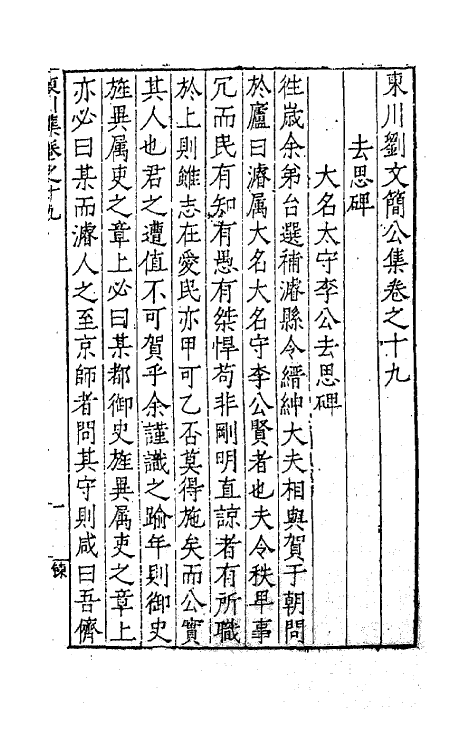 東川劉文簡公集卷之十九
去思碑
大名太守李公去思碑
徃歳余弟台選補濬縣令縉紳大夫相與賀于朝問
於廬曰濬属大名大名守李公賢者也夫令秩卑事
冗而民有知有愚有桀悍苟非剛明直諒者有所職
於上則雖志在愛民亦甲可乙否莫得施矣而公實
其人也君之遭值不可賀乎余謹識之踰年則御史
旌異属吏之章上必曰某都御史旌異属吏之章上
亦必曰某而濬人之至京師者問其守則咸曰吾儕
東川集卷之十九
一